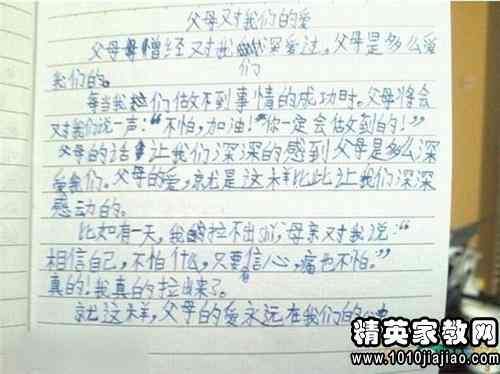 父母对我们的爱
父母曾经对我们深爱过，父母是多么爱
我们的。
每当我们做不到事情的成功时。父母将会
对我们说一声：“不怕，加油！”“你一定会做到的！”
父母的话让我们深深的感到父母是多么深
爱我们。父母的爱，就是这样比比让我们深深
感动的。
比如有一天，我拉不出shi，母亲对我说：“
相信自己，不怕什么，只要有信心，痛也不怕。”
真的！我真的拉出来了。
就这样，父母的爱永远在我们的心里
精英家教网
www.1010jiajiao.com